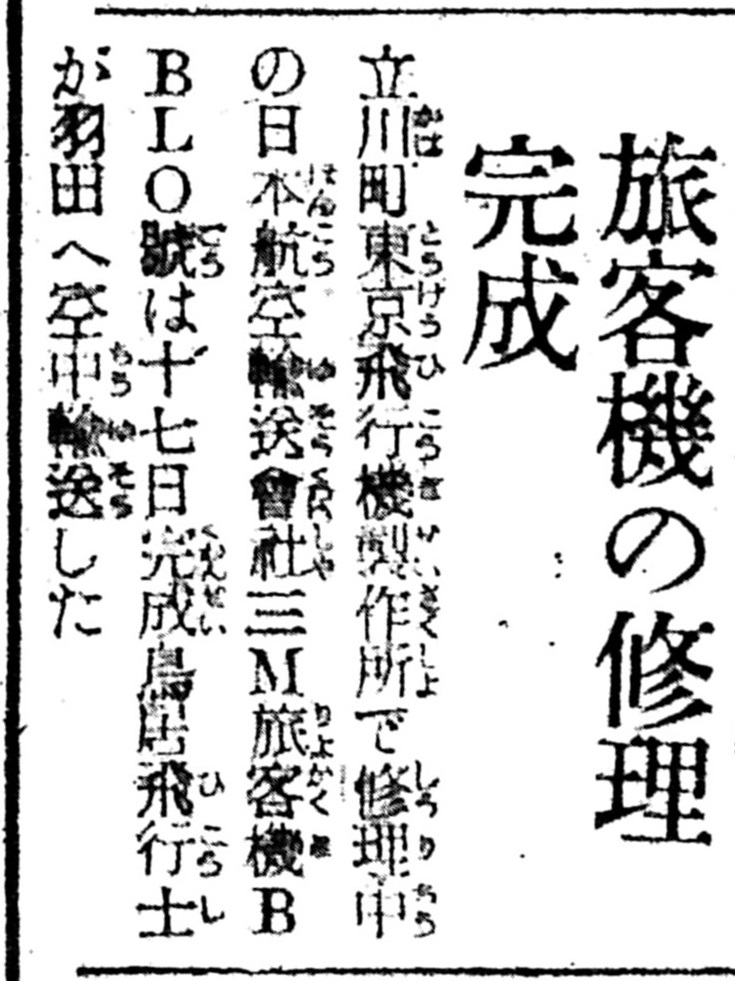 旅客機の修理
完成
立川町東京飛行機製作所で修理中
の日本航空輸送會社三M旅客機B
BLO號は十七日完成鳥居飛行士
が羽田へ空中輸送した